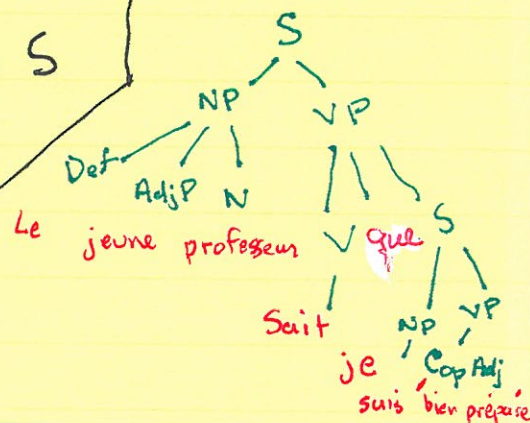 S
S
NP VP
Det AdjP N
Le jeune professeur V que S
Sait NP VP
je Cop Adj
suis bien préparé